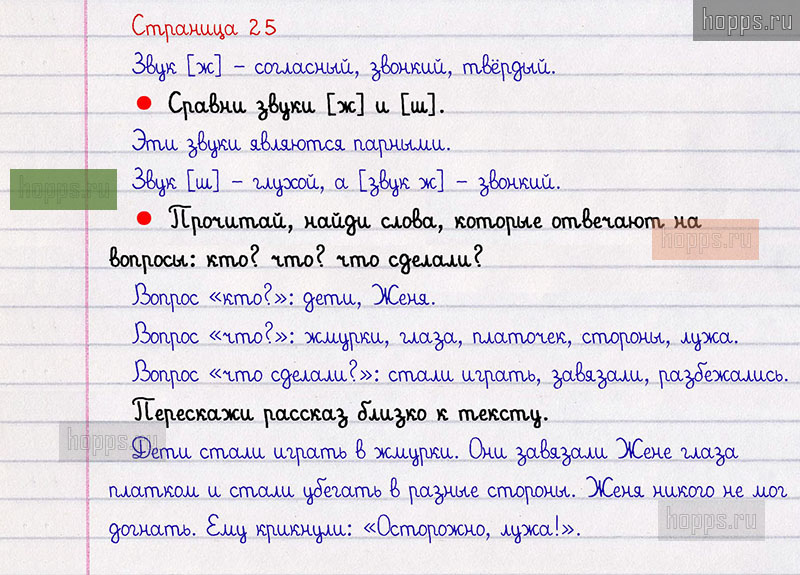 hopps.ru
Страница 25
Звук [ж] – согласный, звонкий, твёрдый.
● Сравни звуки [ж] и [ш].
Эти звуки являются парными.
hopps.ru
Звук [ш] – глухой, а [звук ж] – звонкий.
● Прочитай, найди слова, которые отвечают на
hopps.ru
вопросы: кто? что? что сделали?
Вопрос «кто?»: дети, Женя.
Вопрос «что?»: жмурки, глаза, платочек, стороны, лужа.
Вопрос «что сделали?»: стали играть, завязали, разбежались.
Перескажи рассказ близко к тексту.
hopps.ru
Дети стали играть в жмурки. Они завязали Жене глаза
платком и стали убегать в разные стороны. Женя никого не мог
hopps.ru
догнать. Ему крикнули: «Осторожно, лужа!».